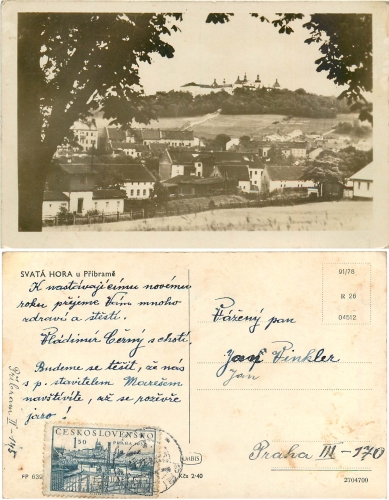 SVATÁ HORA u Příbramě
K nastávajícímu novému
roku přejeme Vám mnoho
zdraví a štěstí.
Vladimir Černý s chotí.
Budeme se těšit, až nás
s p. stavitelem Marešem
navštívíte, až se rozevře
jaro!
Příbram II - 145
ČESKOSLOVENSKO
1.50
PRAHA
ORBIS
Kčs 2·40
91/78
R 26
04512
Vážený pan
Jan
Vinkler
Praha III - 170
2704700